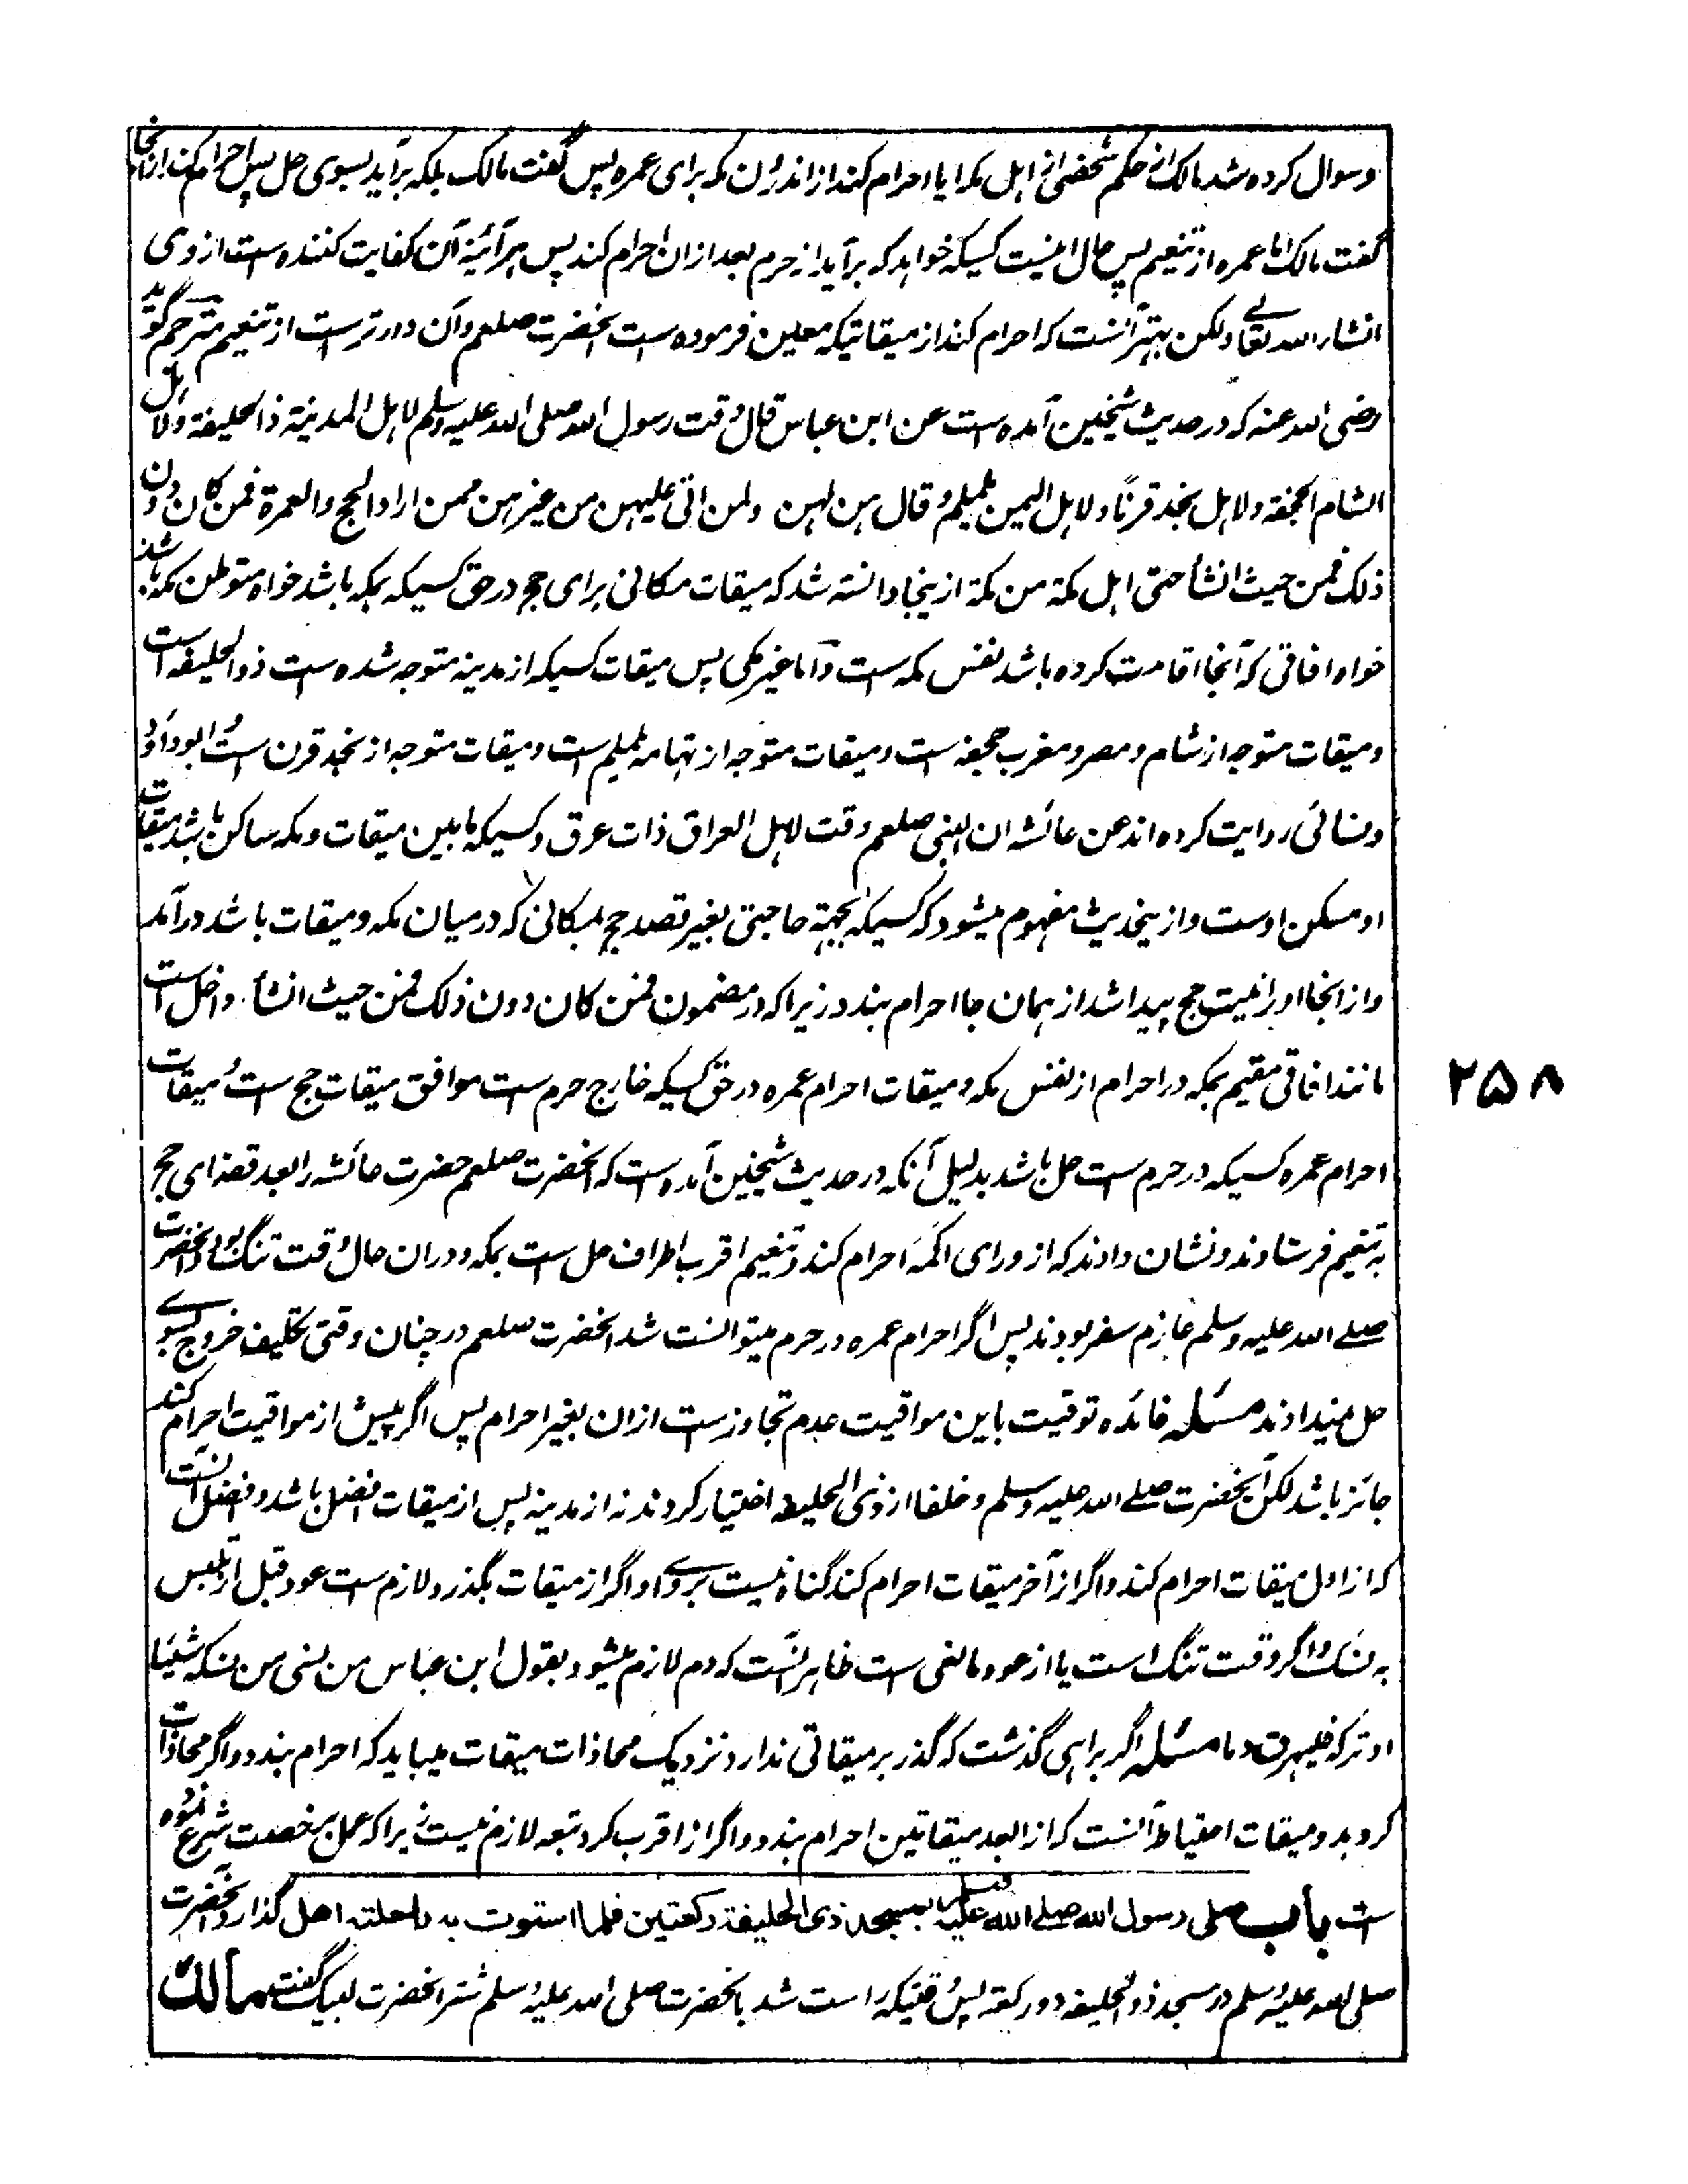 وسوال کرده شد مالک از حکم شخصی از اهل مکه ایا احرام کند از اندرون مکه برای عمره پس گفت مالک بلکه برآید بسوی حل پس احرام کند ازانجا
گفت مالک اما عمره از تنعیم پس حال اینست کسیکه خواهد که برآید از حرم بعد ازان احرام کند پس هر آئینه آن کفایت کننده است از وی
انشاء الله تعالی ولکن بهتر آنست که احرام کند از میقاتیکه معین فرموده است آنحضرت صلعم وآن دور ترست از تنعیم مترجم گوید
رضی الله عنه که در حدیث شیخین آمده است عن ابن عباس قال وقت رسول الله صلی الله علیه وسلم لاهل المدینة ذا الحلیفة ولاهل
الشام الجحفة ولاهل نجد قرنًا ولاهل الیمن یلملم وقال هن لهن ولمن اتی علیهن من غیرهن ممن اراد الحج والعمرة فمن کان دون
ذلک فمن حیث انشأ حتی اهل مکة من مکة ازینجا دانسته شد که میقات مکانی برای حج در حق کسیکه بمکه باشد خواه متوطن مکه باشد
خواه افاقی که آنجا اقامت کرده باشد نفس مکه است واما غیر مکی پس میقات کسیکه از مدینه متوجه شده است ذو الحلیفه است
ومیقات متوجه از شام ومصر ومغرب جحفه است ومیقات متوجه از تهامه یلملم است ومیقات متوجه از نجد قرن است وابوداؤد
ونسائی روایت کرده اند عن عائشه ان النبی صلعم وقت لاهل العراق ذات عرق وکسیکه مابین میقات ومکه ساکن باشد میقات
او مسکن اوست وازینحدیث مفهوم میشود که کسیکه بجهة حاجتی بغیر قصد حج بمکانی که درمیان مکه ومیقات باشد درآمد
وازانجا اورا نیت حج پیدا شد از همان جا احرام بندد زیرا که در مضمون فمن کان دون ذلک فمن حیث انشأ داخل است
مانند افاقی مقیم بمکه در احرام از نفس مکه ومیقات احرام عمره در حق کسیکه خارج حرم ست موافق میقات حج ست ومیقات
احرام عمره کسیکه در حرم ست حل باشد بدلیل آنکه در حدیث شیخین آمده است که آنحضرت صلعم حضرت عائشه را بعد قضای حج
به تنعیم فرستادند ونشان دادند که از ورای اکمه احرام کند وتنعیم اقرب اطراف حل ست بمکه ودران حال وقت تنگ بود وآنحضرت
صلے الله علیه وسلم عازم سفر بودند پس اگر احرام عمره در حرم میتوانست شد آنحضرت صلعم در چنان وقتی تکلیف خروج بسوے
حل نمیدادند مسئله فائده توقیت باین مواقیت عدم تجاوزست ازان بغیر احرام پس اگر پیش از مواقیت احرام کند
جائز باشد لکن آنحضرت صلے الله علیه وسلم وخلفا از ذی الحلیفه اختیار کردند نه از مدینه پس از میقات افضل باشد وافضل آنست
که از اول میقات احرام کند واگر از آخر میقات احرام کند گناه نیست بروے واگر از میقات بگذرد لازم ست عود قبل از تلبس
به نسک واگر وقت تنگ است یا از عود مانعی ست ظاهر آنست که دم لازم میشود بقول ابن عباس من نسی من نسکه شیئا
او ترکه فلیهرق دما مسئله اگر براهی گذشت که گذر بر میقاتی ندارد نزدیک محاذات میقات میباید که احرام بندد واگر محاذات
کرد بدو میقات احتیاط آنست که از ابعد میقاتین احرام بندد واگر از اقرب کرد تبعه لازم نیست زیرا که عمل برخصت شرع نموده
است باب صلی رسول الله صلے الله علیه وسلم بمسجد ذی الحلیفة رکعتین فلما استوت به راحلته اهل گذارد آنحضرت
صلی الله علیه وسلم در مسجد ذو الحلیفه دو رکعة پس وقتیکه راست شد بآنحضرت صلی الله علیه وسلم شتر آنحضرت لبیک گفت مالك
۲۵۸